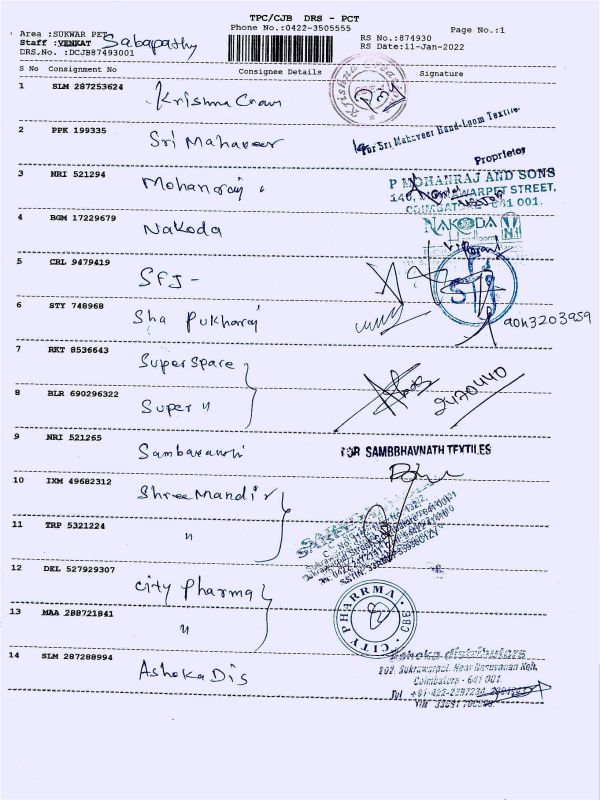 TPC/CJB DRS - PCT
Phone No.:0422-3505555
Page No.:1
Area :SUKWAR PET
Staff :VENKAT Sabapathy
DRS.No. :DCJB87493001
RS No.:874930
RS Date:11-Jan-2022
S No Consignment No Consignee Details Signature
1 SLM 287253624
2 PPK 199335 Sri Mahaveer
For Sri Mahaveer Hand-Loom Textile
Proprietor
3 NRI 521294 Mohanraj
P MOHANRAJ AND SONS
STREET,
4 BGM 17229679 Nakoda
NAKODA
5 CRL 9479419 SFJ -
6 STY 748968 Sha Pukharaj
9043203959
7 RKT 8536643 Super Spare
8 BLR 690296322 Super "
2420440
9 NRI 521265
FOR SAMBBHAVNATH TEXTILES
10 IXM 49682312 Shree Mandir
11 TRP 5321224 "
12 DEL 527929307 City Pharma
13 MAA 288721841 "
CITY PHARRMA
CBE
14 SLM 287288994 Ashoka Dis
Ashoka distributors
Coimbatore - 641 001.
Tel